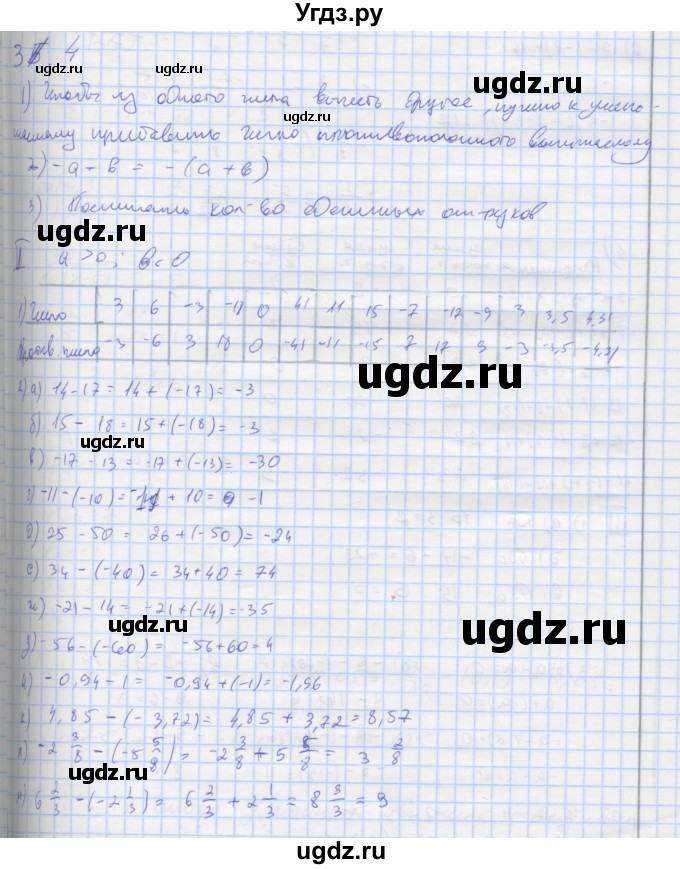 Угдз.ру
3 4
1) Чтобы из одного числа вычесть другое, нужно к умень-
шаемому прибавить число противоположного вычитаемому
2) -a - b = -(a + b)
3) Посчитать кол-во единичных отрезков
II a > 0; b < 0
1) Число 3 6 -3 -18 0 41 11 15 -7 -12 -9 3 3,5 4,31
-3 -6 3 18 0 -41 -11 -15 7 12 9 -3 -3,5 -4,31
2) а) 14 - 17 = 14 + (-17) = -3
б) 15 - 18 = 15 + (-18) = -3
в) -17 - 13 = -17 + (-13) = -30
г) -11 - (-10) = -11 + 10 = -1
д) 25 - 50 = 26 + (-50) = -24
е) 34 - (-40) = 34 + 40 = 74
ж) -21 - 14 = -21 + (-14) = -35
з) -56 - (-60) = -56 + 60 = 4
и) -0,94 - 1 = -0,94 + (-1) = -1,96
к) 4,85 - (-3,72) = 4,85 + 3,72 = 8,57
л) -2 3/8 - (-5 5/8) = -2 3/8 + 5 5/8 = 3 2/8
м) 6 2/3 - (-2 1/3) = 6 2/3 + 2 1/3 = 8 3/3 = 9
ugdz.ru
ugdz.ru
ugdz.ru
ugdz.ru
ugdz.ru
ugdz.ru
ugdz.ru
ugdz.ru
ugdz.ru
ugdz.ru
ugdz.ru